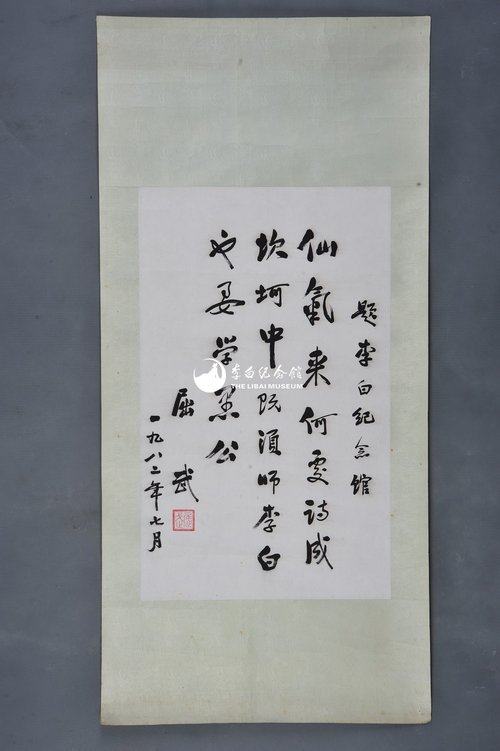 题李白纪念馆
仙氣来何處诗成
坎坷中既须师李白
也要学愚公
屈武
一九八二年七月
李白纪念馆
THE LIBAI MUSEUM